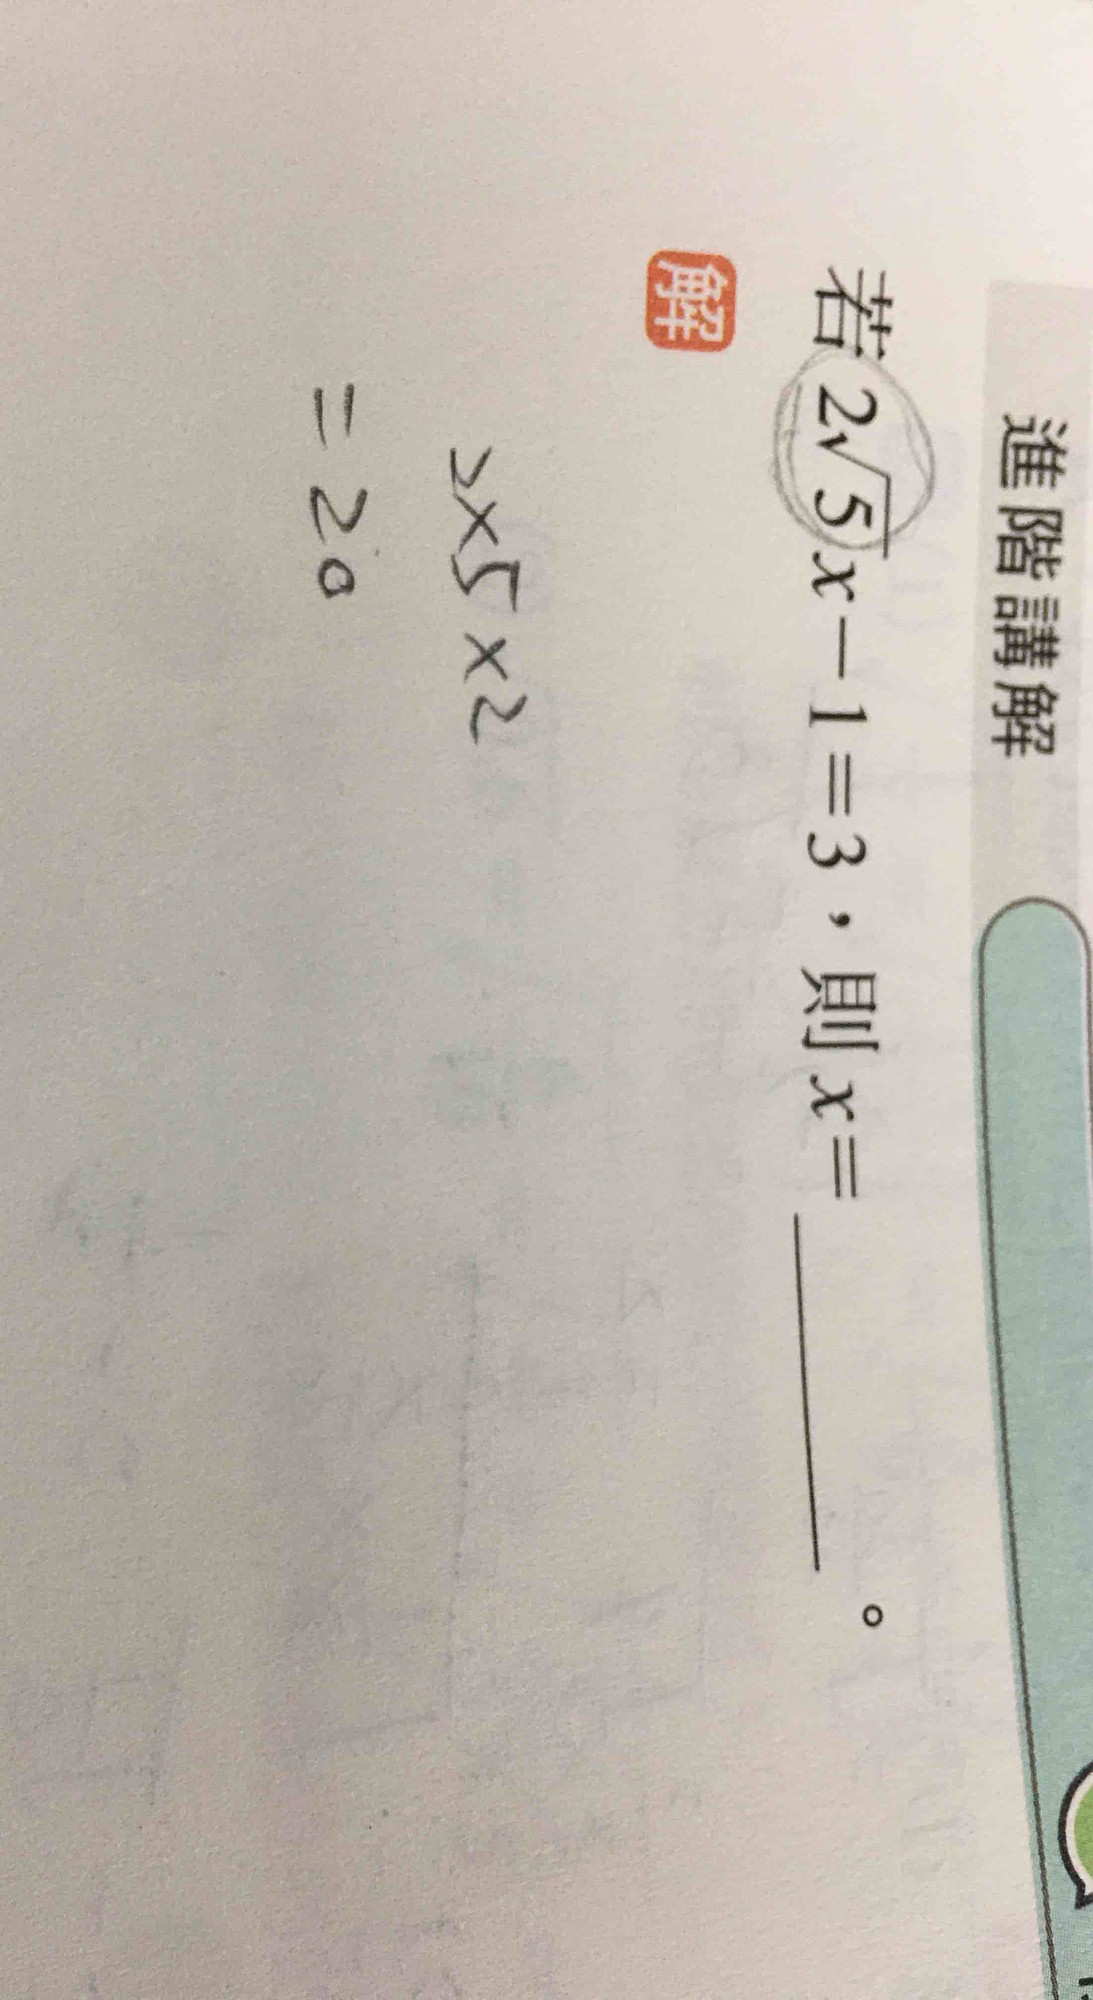 進階講解
若 2√5x−1=3，則 x=＿＿＿。
解
2×5×2
=20